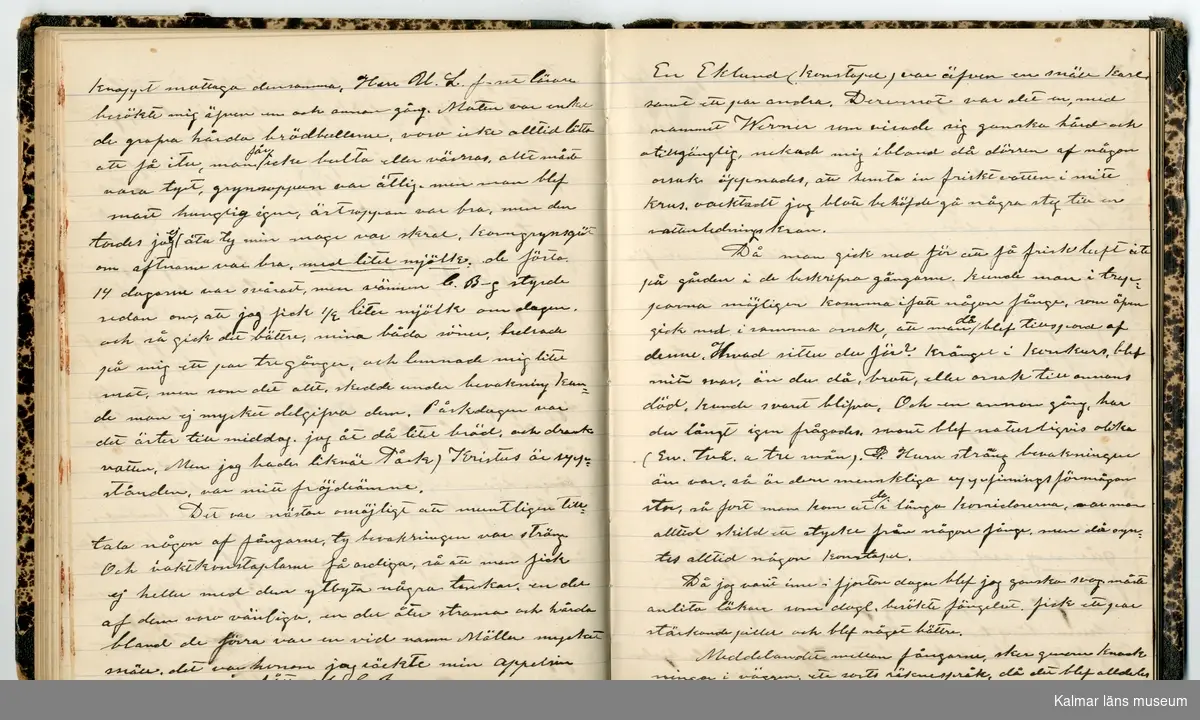 knappt mottaga densamma. Herr U. L. f-ne lärare
besökte mig äfven en och annan gång. Maten var enkel
de grofva hårda brödhallarne, voro icke alltid lätta
att få itu, man får icke bulta eller väsnas, allt måste
vara tyst, grynsoppan var ätlig men man blef
snart hungrig igen, ärtsoppan var bra, men den
tordes jag ej äta ty min mage var skral, korngrynsgröt
om aftnarne var bra, med litet mjölk. de första
14 dagarne var svårast, men vännen C. B-g styrde
sedan om, att jag fick 1/2 liter mjölk om dagen.
och så gick det bättre, mina båda söner, helsade
på mig ett par tre gånger, och lemnade mig litet
mat, men som det allt, skedde under bevakning kun-
de man ej mycket delgifva dem. Påskdagen var
det ärter till middag. jag åt då litet bröd, och drack
vatten. Men jag hade liknäl Påsk) Kristus är upp-
stånden, var mitt fröjdeämne.
Det var nästan omöjligt att muntligen till-
tala någon af fångarne, ty bevakningen var sträng
Och vaktkonstaplarne få ordiga, så att man fick
ej heller med dem utbyta några tankar. en del
af dem voro vänliga, en del åter strama och hårda
bland de förra var en vid namn Möller mycket
snäll. det var honom jag räckte min appelsin
En Eklund (konstapel) var äfven en snäll karl
samt ett par andra. Deremot var det en, med
namnet Werner som visade sig ganska hård och
otillgänglig, nekade mig ibland då dörren af någon
orsak öppnades, att hemta in friskt vatten i mitt
krus. oacktadt jag blott behöfde gå några steg till en
vattenledningskran.
Då man gick ned för att få frisk luft ute
på gården i de beskrifna gångarne. kunde man i trap-
porna möjligen komma ifatt någon fånge, som äfven
gick ned i samma orsak, att man då blef tillspord af
denne. Hvad sitter du för? krånget i konkurs, blef
mitt svar, än du då, brott, eller orsak till annans
död, kunde svaret blifva. Och en annan gång, har
du långt igen frågades. svaret blef naturligvis olika
(En. två. a tre mån). Huru sträng bevakningen
än var, så är den menskliga uppfinningsförmågan
stor, så fort man kom ut i de långa korridorerna, var man
alltid skild ett stycke från någon fånge, men då syn-
tes alltid någon konstapel.
Då jag varit inne i fjorton dagar blef jag ganska svag måste
anlita läkare som dagl. besökte fängelset. fick ett par
stärkande piller och blef något bättre.
Meddelandet mellan fångarne, sker genom knack-
ningar i väggen, ett sorts räknespråk, då det blef alldeles
Kalmar läns museum